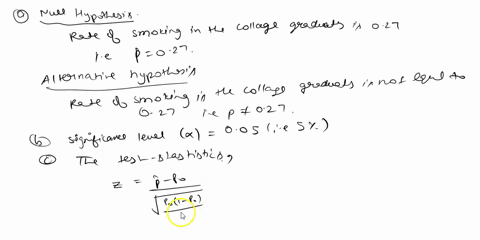 (a) Null Hypothesis
Rate of smoking in the collage graduats is 0.27
i.e p̂ = 0.27.
Alternative hypothesis
Rate of smoking in the collage graduats is not equal to
0.27 i.e p ≠ 0.27.
(b) significance level (α) = 0.05 (i.e 5%)
(c) The test-stastistics,
z = p̂ - p₀
√p₀(1-p₀)